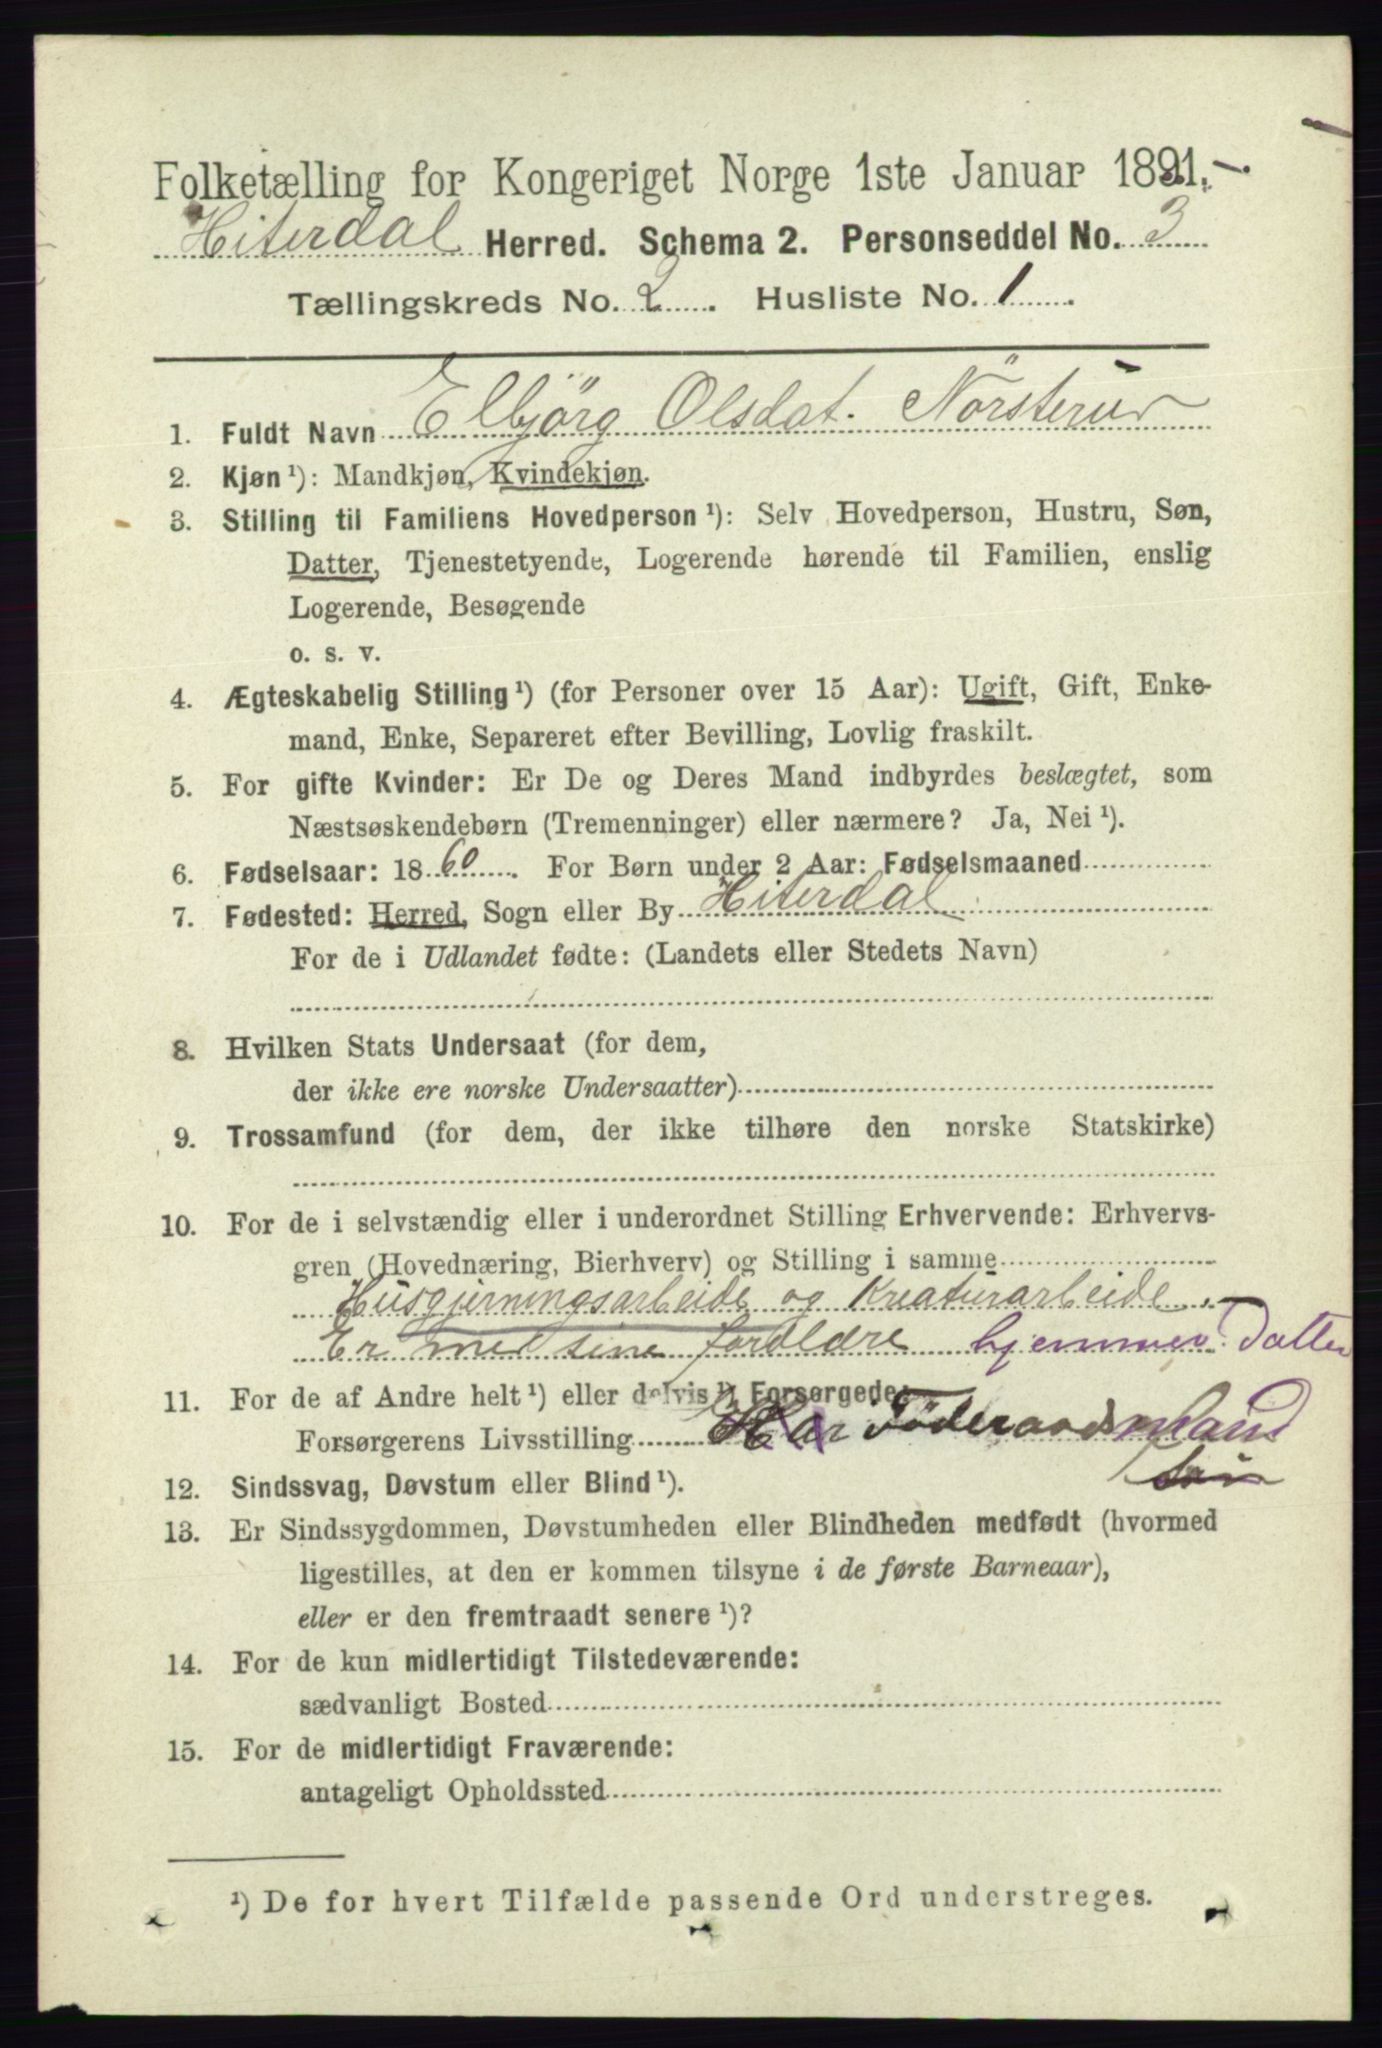 Folketælling for Kongeriget Norge 1ste Januar 1891.
Hiterdal Herred. Schema 2. Personseddel No. 3
Tællingskreds No. 2. Husliste No. 1.
1. Fuldt Navn Elbjörg Olsdat. Nörsterud
2. Kjøn ¹): Mandkjøn, Kvindekjøn.
3. Stilling til Familiens Hovedperson ¹): Selv Hovedperson, Hustru, Søn,
Datter, Tjenestetyende, Logerende hørende til Familien, enslig
Logerende, Besøgende
o. s. v.
4. Ægteskabelig Stilling ¹) (for Personer over 15 Aar): Ugift, Gift, Enke-
mand, Enke, Separeret efter Bevilling, Lovlig fraskilt.
5. For gifte Kvinder: Er De og Deres Mand indbyrdes beslægtet, som
Næstsøskendebørn (Tremenninger) eller nærmere? Ja, Nei ¹).
6. Fødselsaar: 1860. For Børn under 2 Aar: Fødselsmaaned
7. Fødested: Herred, Sogn eller By Hiterdal
For de i Udlandet fødte: (Landets eller Stedets Navn)
8. Hvilken Stats Undersaat (for dem,
der ikke ere norske Undersaatter)
9. Trossamfund (for dem, der ikke tilhøre den norske Statskirke)
10. For de i selvstændig eller i underordnet Stilling Erhvervende: Erhvervs-
gren (Hovednæring, Bierhverv) og Stilling i samme
Husgjerningsarbeide og Kreaturarbeide.
Er med sine forældre hjemmev. Datter
11. For de af Andre helt ¹) eller delvis ¹) Forsørgede:
Forsørgerens Livsstilling Har Föderaadsmand
12. Sindssvag, Døvstum eller Blind ¹).
13. Er Sindssygdommen, Døvstumheden eller Blindheden medfødt (hvormed
ligestilles, at den er kommen tilsyne i de første Barneaar),
eller er den fremtraadt senere ¹)?
14. For de kun midlertidigt Tilstedeværende:
sædvanligt Bosted
15. For de midlertidigt Fraværende:
antageligt Opholdssted
¹) De for hvert Tilfælde passende Ord understreges.